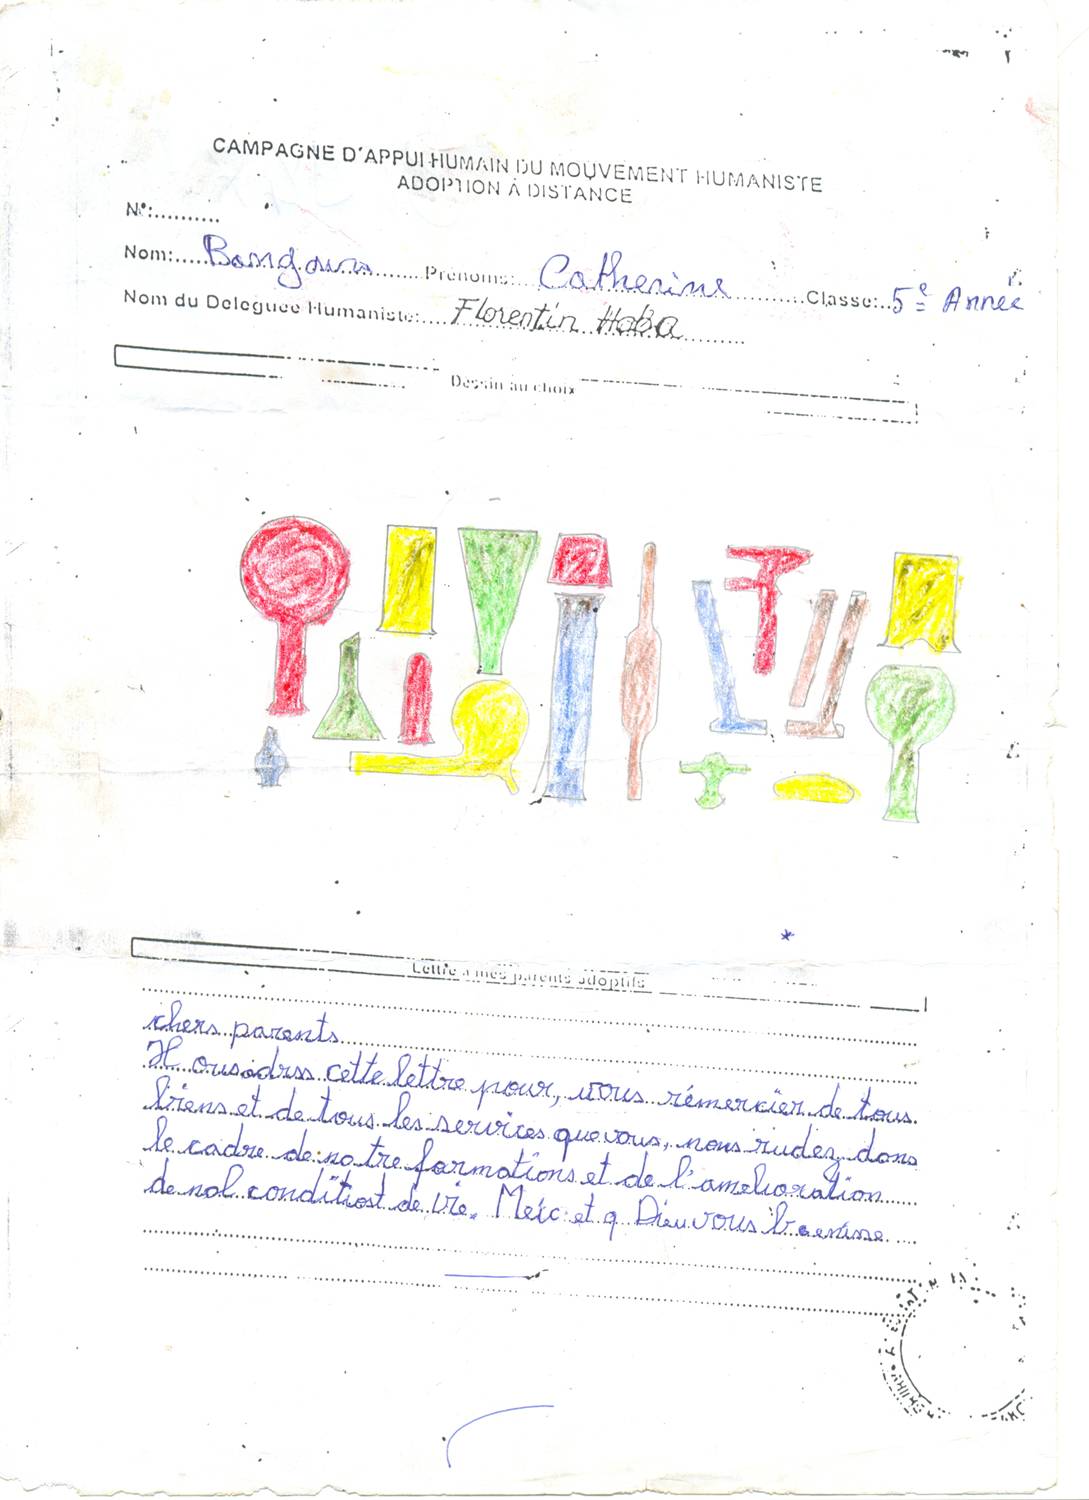 CAMPAGNE D'APPUI HUMAIN DU MOUVEMENT HUMANISTE
ADOPTION À DISTANCE
N°:..........
Nom:.... Prénoms:. Catherine ..........Classe:..5è Année
Nom du Deleguée Humaniste:....Florentin Haba
Dessin au choix
Lettre a mes parents adoptifs
chers parents
cette lettre pour, vous rémercier de tous
biens et de tous les services que vous, nous rudez, dans
le cadre de notre formations et de l'amelioration
de nol conditiost de vie. Meic et q Dieu vous